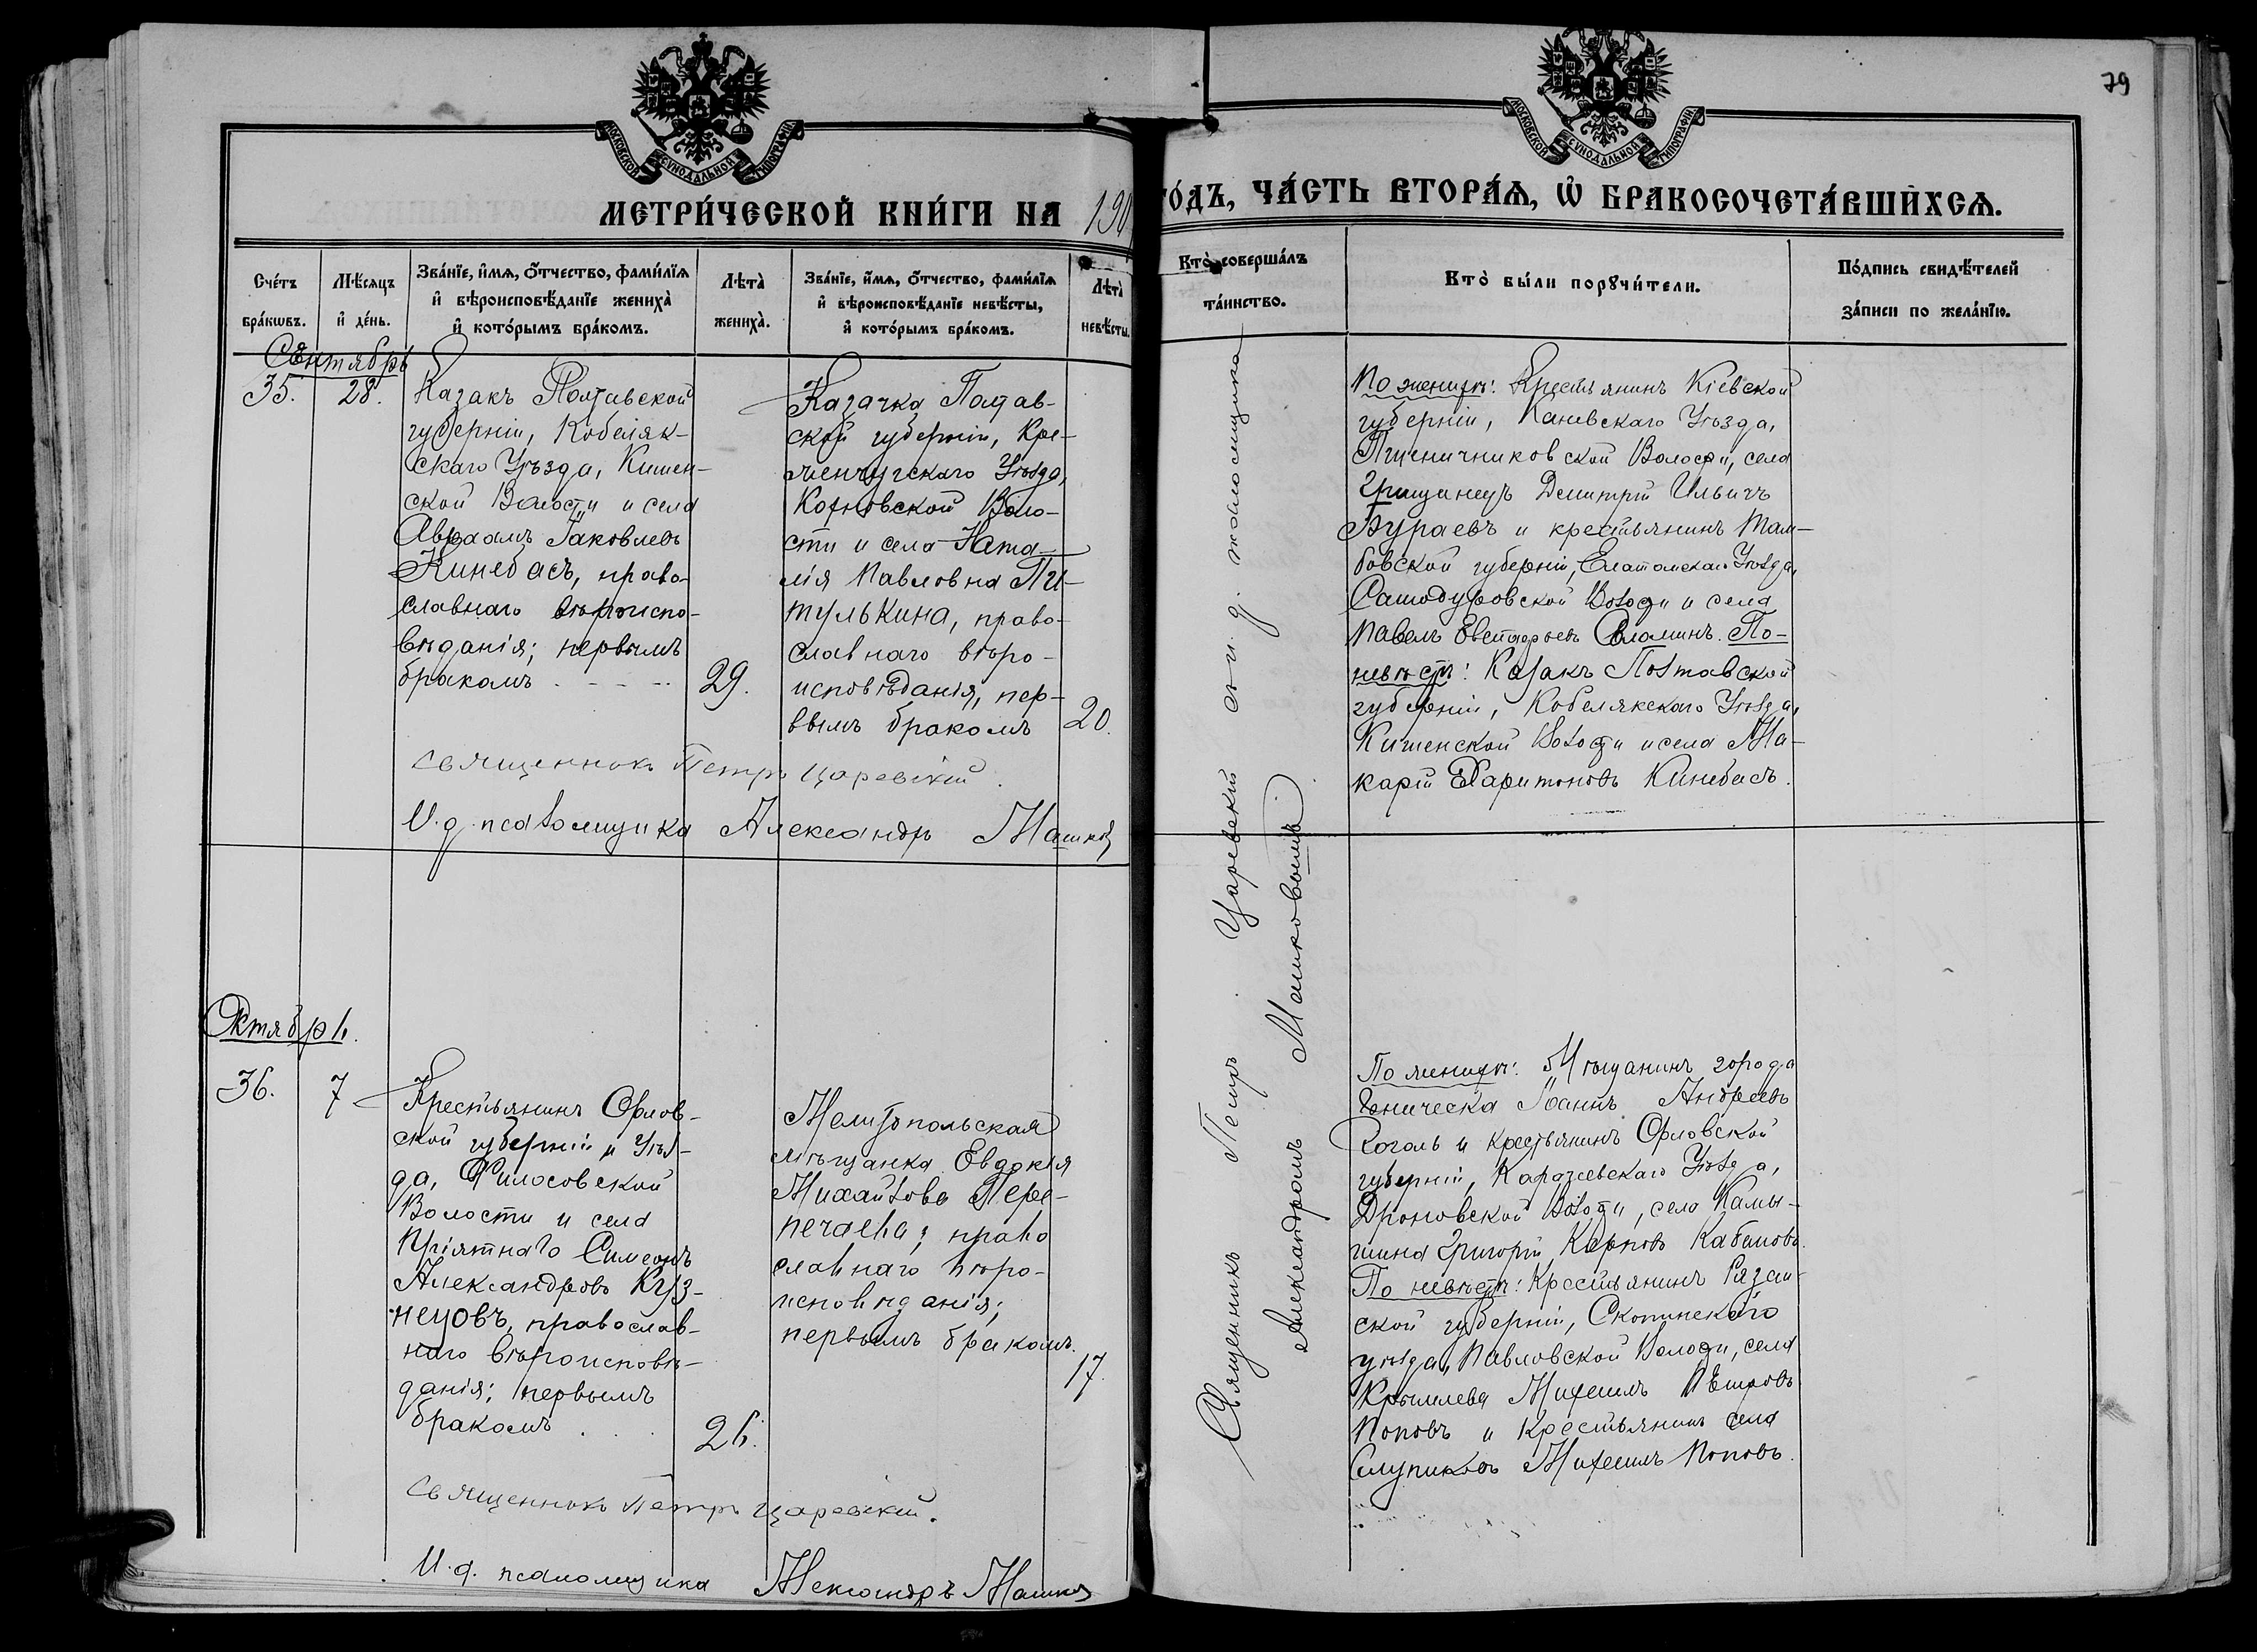 79
МОСКОВСКОЙ СУНОДАЛЬНОЙ ТИПОГРАФІИ
МОСКОВСКОЙ СУНОДАЛЬНОЙ ТИПОГРАФІИ
МЕТРИ́ЧЕСКОЙ КНИ́ГИ НА 190
ГО́ДЪ, ЧА́СТЬ ВТОРА́Ѧ, Ѽ БРАКОСОЧЕТА́ВШИХСѦ.
Сче́тъ бра́кωвъ.
Мѣ́сѧцъ и҆ де́нь.
Зва́нїе, и҆́мѧ, ѻ҆́тчество, фами́лїѧ
и҆ вѣроисповѣ́данїе жениха̀
и҆ кото́рымъ бра́комъ.
Лѣта̀
жениха̀.
Зва́нїе, и҆́мѧ, ѻ҆́тчество, фами́лїѧ
и҆ вѣроисповѣ́данїе невѣ́сты,
и҆ кото́рымъ бра́комъ.
Лѣта̀
невѣ́сты.
Кто̀ соверша́лъ
та́инство.
Кто̀ бы́ли порꙋчи́тели.
По́дпись свидѣ́телей
за́писи по жела́нїю.
Сентябрь
35.
28.
Казакъ Полтавской
губерніи, Кобеляк-
скаго Уѣзда, Кишен-
ской Волости и села
Авраамъ Іаковлевъ
Кинебасъ, право-
славнаго вѣроиспо-
вѣданія; первымъ
бракомъ
29.
Казачка Полтав-
ской губерніи, Кре-
менчугскаго Уѣзда,
Воло-
сти и села Ната-
лія Павловна Пи-
тулькина, право-
славнаго вѣро-
исповѣданія, пер-
вымъ бракомъ
20.
Священникъ Петръ Царевскій.
И. д. псаломщика Александръ Машков
Священникъ Петръ Царевскій съ и. д. псаломщика
Александромъ Машковымъ
По женихѣ: Крестьянинъ Кіевской
губерніи, Каневскаго Уѣзда,
Пшеничниковской Волости, села
Грищинецъ Димитрій Ильичъ
Бураевъ и крестьянинъ Там-
бовской губерніи, Елатомскаго Уѣзда,
Волости и села
Павелъ По
невѣстѣ: Казакъ Полтавской
губерніи, Кобелякскаго Уѣзда,
Кишенской Волости и села Ма-
карій Харитоновъ Кинебасъ.
Октябрь.
36.
7
Крестьянинъ Орлов-
ской губерніи и Уѣз-
да, Философской
Волости и села
Пріятнаго Симеонъ
Александровъ Куз-
нецовъ, православ-
наго вѣроисповѣ-
данія; первымъ
бракомъ
26.
Мелитопольская
мѣщанка Евдокія
Михайлова Пере-
печаева; право
славнаго вѣро-
исповѣданія;
первымъ бракомъ.
17.
Священникъ Петръ Царевскій.
И. д. псаломщика Александръ Машков
По женихѣ: Мѣщанинъ города
Геническа Іоаннъ Андреевъ
Гоголь и крестьянинъ Орловской
губерніи, Карачевскаго Уѣзда,
Дроновской Волости, села Камы-
шина Григорій Карповъ Кабановъ.
По невѣстѣ: Крестьянинъ Рязан-
ской губерніи, Скопинскаго
уѣзда, Павловской Волости, села
Михаилъ Петровъ
Поповъ и Крестьянинъ села
Михаилъ Поповъ.